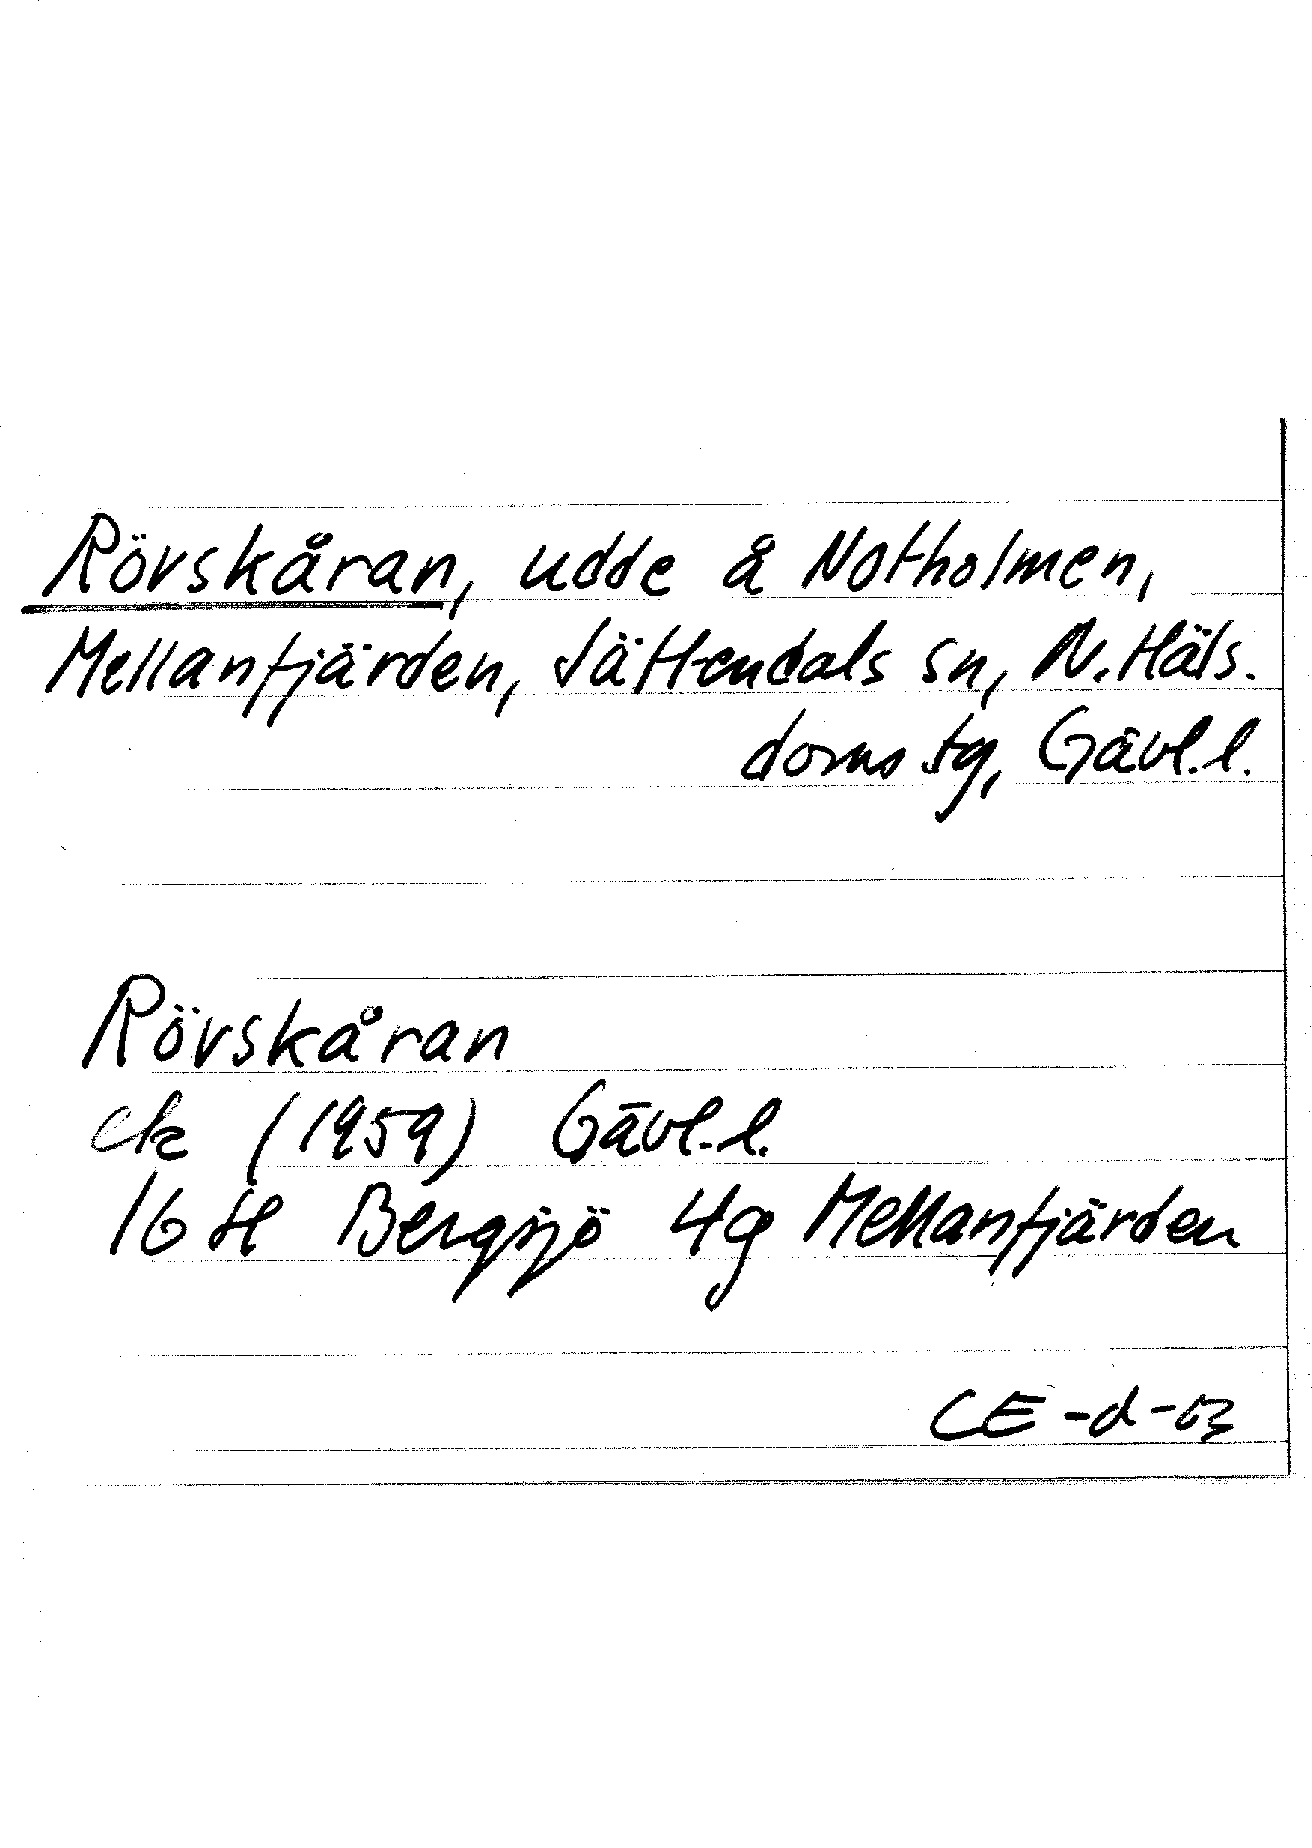 Rövskåran, udde å Notholmen,
Mellanfjärden, Jättendals sn, N. Häls.
doms tg, Gävl. l.
Rövskåran
ek (1959) Gävl. l.
16 H Bergsjö 4g Mellanfjärden
CE-d-03